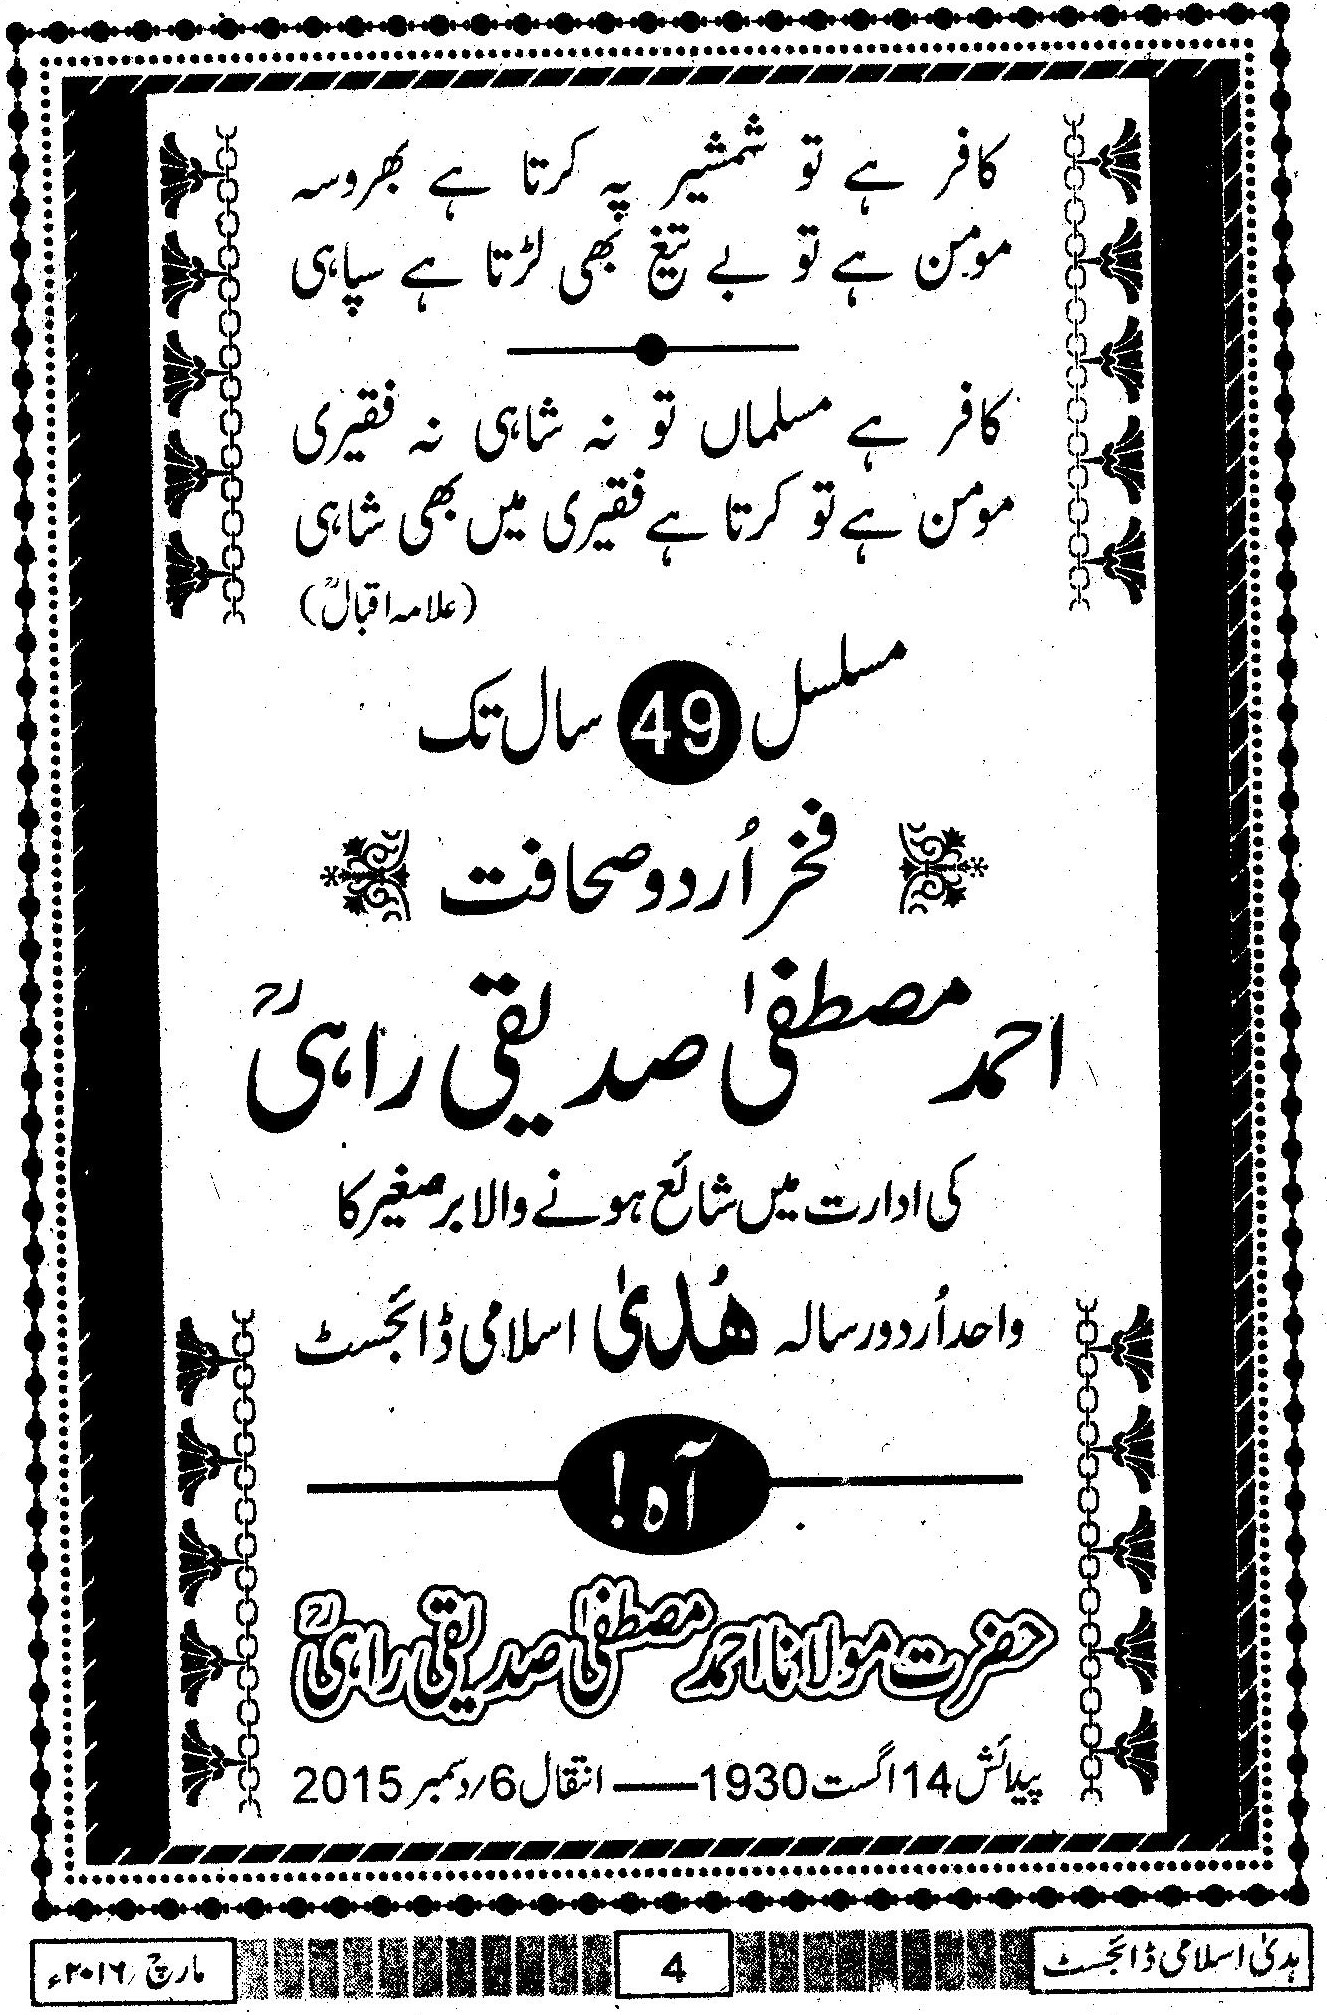 کافر ہے تو شمشیر پہ کرتا ہے بھروسہ
مومن ہے تو بے تیغ بھی لڑتا ہے سپاہی
کافر ہے مسلماں تو نہ شاہی نہ فقیری
مومن ہے تو کرتا ہے فقیری میں بھی شاہی
(علامہ اقبالؒ)
مسلسل 49 سال تک
فخر اُردو صحافت
احمد مصطفیٰ صدیقی راہیؒ
کی ادارت میں شائع ہونے والا برصغیر کا
واحد اُردو رسالہ ھُدیٰ اسلامی ڈائجسٹ
آہ!
حضرت مولانا احمد مصطفیٰ صدیقی راہیؒ
پیدائش 14 اگست 1930 — انتقال 6؍دسمبر 2015
ہدیٰ اسلامی ڈائجسٹ 4 مارچ؍۲۰۱۶ء